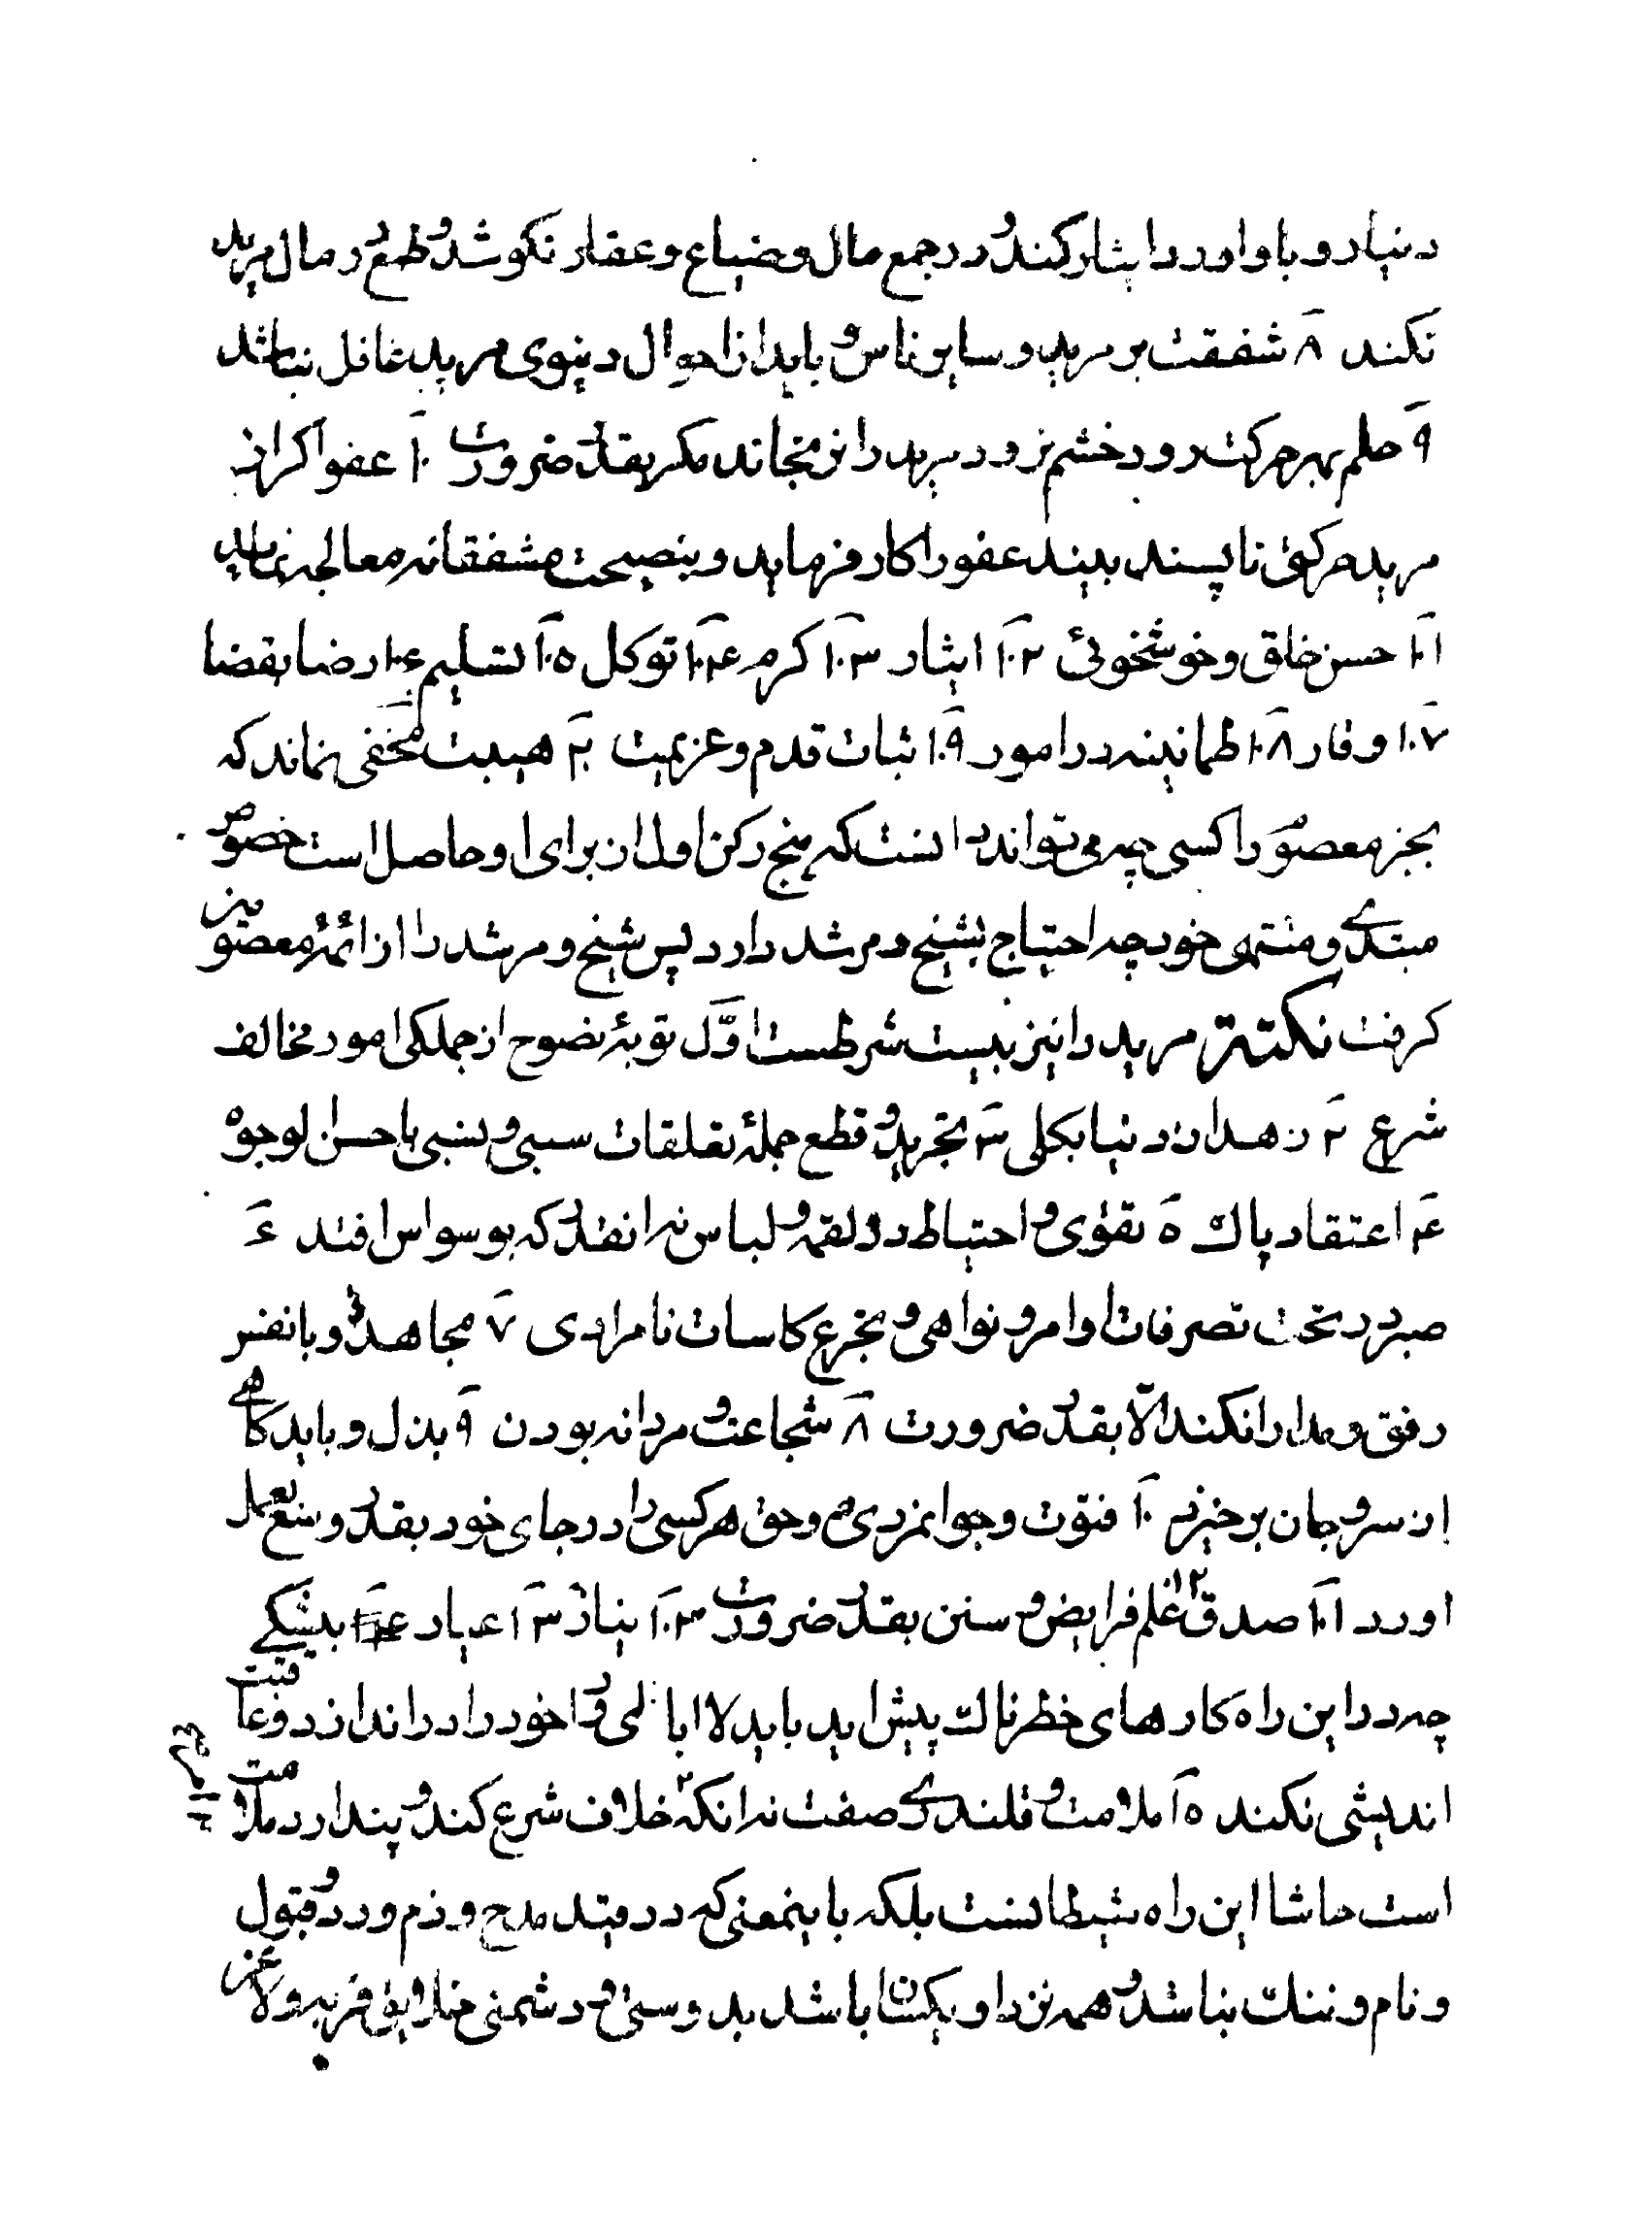 دنیا رو باو اورد ایثار کند و در جمع مال و ضیاع و عقار نکوشد و طمع در مال مرید
نکند ۸ شفقت بر مرید و سایر ناس و باید از احوال دنیوی مرید غافل نباشد
۹ حلم بهر حرکت زود بخشم نرود و مرید را نرنجاند مکر بقدر ضرورت ۱۰ عفو اکر از
مرید حرکتی ناپسند بیند عفو را کار فرماید و بنصیحت مشفقانه معالجه نماید
۱۰۱ حسن خلق و خوشخوئی ۱۰۲ ایثار ۱۰۳ کرم ۱۰۴ توکل ۱۰۵ تسلیم ۱۰۶ رضا بقضا
۱۰۷ وقار ۱۰۸ طمانینه در امور ۱۰۹ ثبات قدم و عزیمت ۲۰ هیبت مخفی نماند که
بجز معصوم را کسی چه می تواند دانست که پنج رکن اول از برای او حاصل است خصوص
مبتدی و منتهی خود چه احتیاج بشیخ و مرشد دارد پس شیخ و مرشد را از ائمۀ معصومین
کرفت نکته مرید را نیز بیست شرطست اوّل توبۀ نصوح از جملکی امور مخالف
شرع ۲ زهد از دنیا بکلی ۳ تجرید و قطع جملۀ تعلقات سببی و نسبی باحسن لوجوه
۴ اعتقاد پاك ۵ تقوٰی و احتیاط در لقمه و لباس نه انقدر که بوسواس افتد ۶
صبر در تحت تصرفات اوامر و نواهی و تجرع کاسات نامرادی ۷ مجاهده و با نفس
رفق و مدارا نکند الّا بقدر ضرورت ۸ شجاعت و مردانه بودن ۹ بذل و باید کاهے
از سر و جان برخیزد ۱۰ فتوّت و جوانمردی و حق هر کسی را در جای خود بقدر وسع بعمل
اورد ۱۰۱ صدق ۱۲ علم فرایض و سنن بقدر ضرورت ۱۰۳ نیاز ۱۳ عیار ۱۴ بیشکے
چه در این راه کارهای خطرناك پیش اید باید لا ابالی وار خود را در اندازد و عاقبت
اندیشی نکند ۱۵ ملامت و قلندری صفت نه انکه خلاف شرع کند و پندارد ملامت
است حاشا این راه شیطانست بلکه باینمعنی که در قید مدح و ذم و رد و قبول
و نام و ننك نباشد و همه نزد او یکسان باشد بدوستی و دشمنی خلایق فربه و لاغر